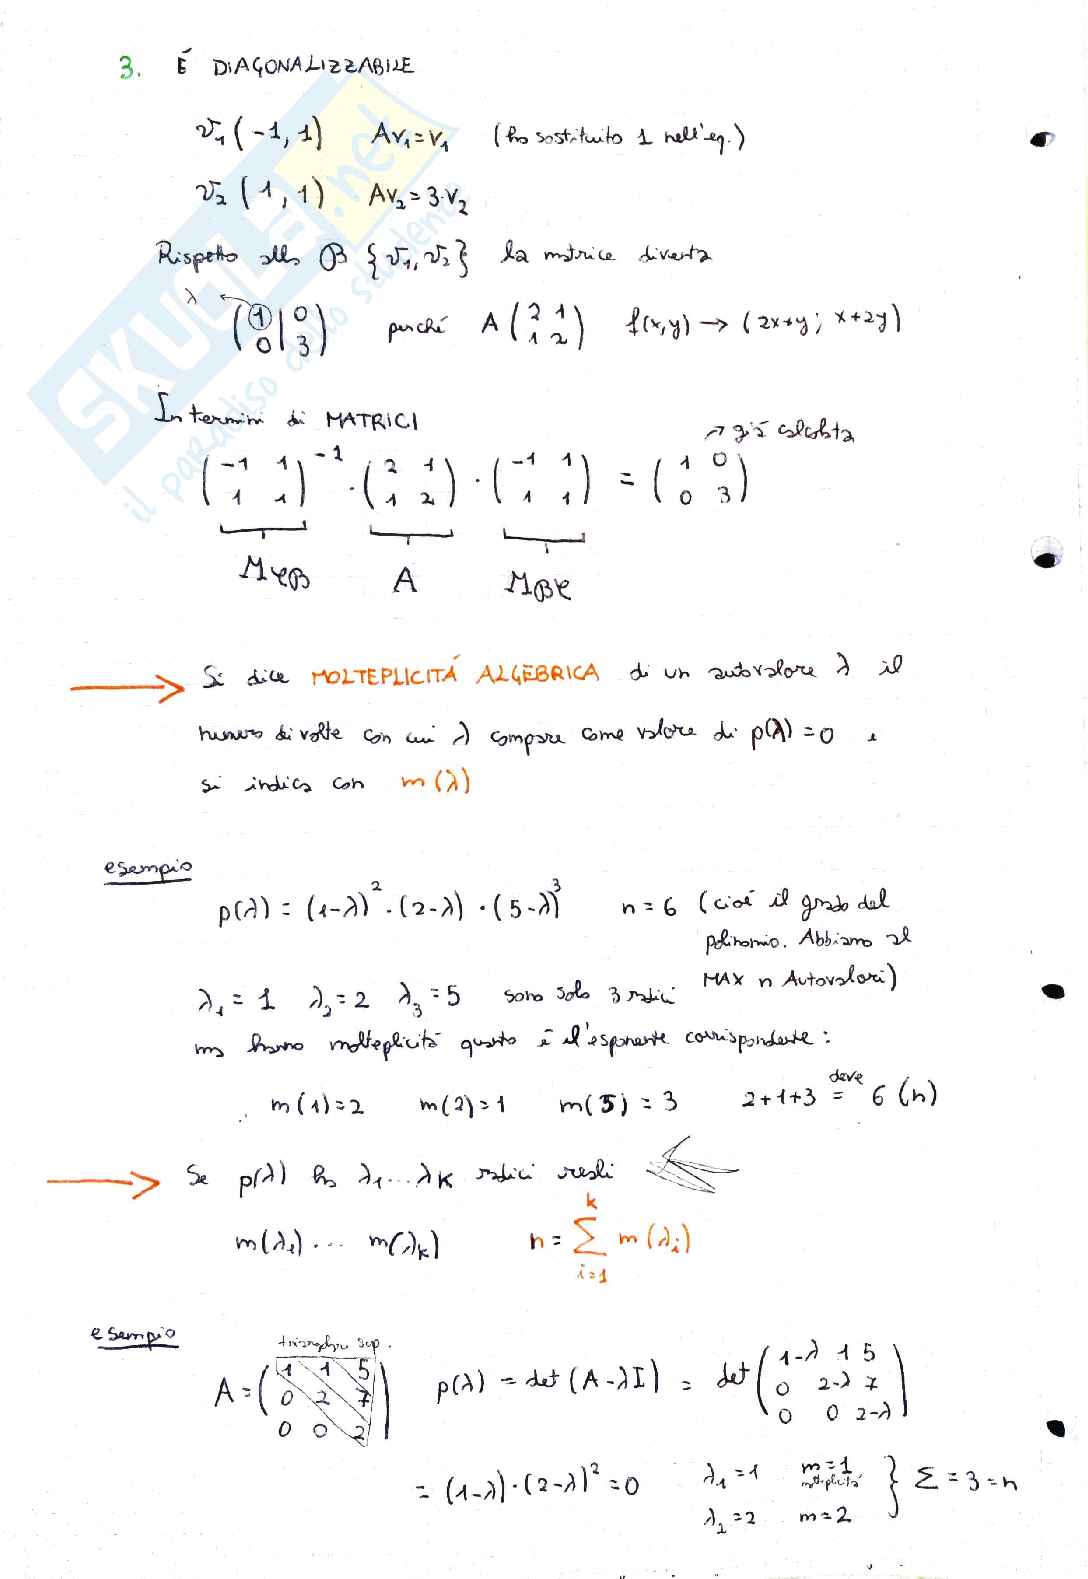 3. É DIAGONALIZZABILE
v₁(-1,1) Av₁=v₁ (ho sostituito 1 nell'eq.)
v₂(1,1) Av₂=3·v₂
Rispetto alla B {v₁,v₂} la matrice diventa
λ
(1 | 0
0 | 3) perché A (2 1
1 2) f(x,y) → (2x+y; x+2y)
In termini di MATRICI
↗ già calcolata
(-1 1
1 1)⁻¹ · (2 1
1 2) · (-1 1
1 1) = (1 0
0 3)
M𝒞B A MB𝒞
Si dice MOLTEPLICITÁ ALGEBRICA di un autovalore λ il
numero di volte con cui λ compare come valore di p(λ)=0 e
si indica con m(λ)
esempio
p(λ) = (1-λ)² · (2-λ) · (5-λ)³ n=6 (cioé il grado del
polinomio. Abbiamo al
MAX n Autovalori)
λ₁=1 λ₂=2 λ₃=5 sono solo 3 radici
ma hanno molteplicitá quanto é l'esponente corrispondente:
m(1)=2 m(2)=1 m(5)=3 2+1+3 deve = 6 (n)
Se p(λ) ha λ₁...λK radici reali
m(λ₁)... m(λk) n = Σ k i=1 m(λi)
esempio
triangolare sup.
A = (1 1 5
0 2 7
0 0 2) p(λ) = det(A-λI) = det (1-λ 1 5
0 2-λ 7
0 0 2-λ)
= (1-λ)·(2-λ)²=0 λ₁=1 m=1 molteplicitá } Σ=3=n
λ₂=2 m=2
SKUOLA.net
il paradiso dello studente